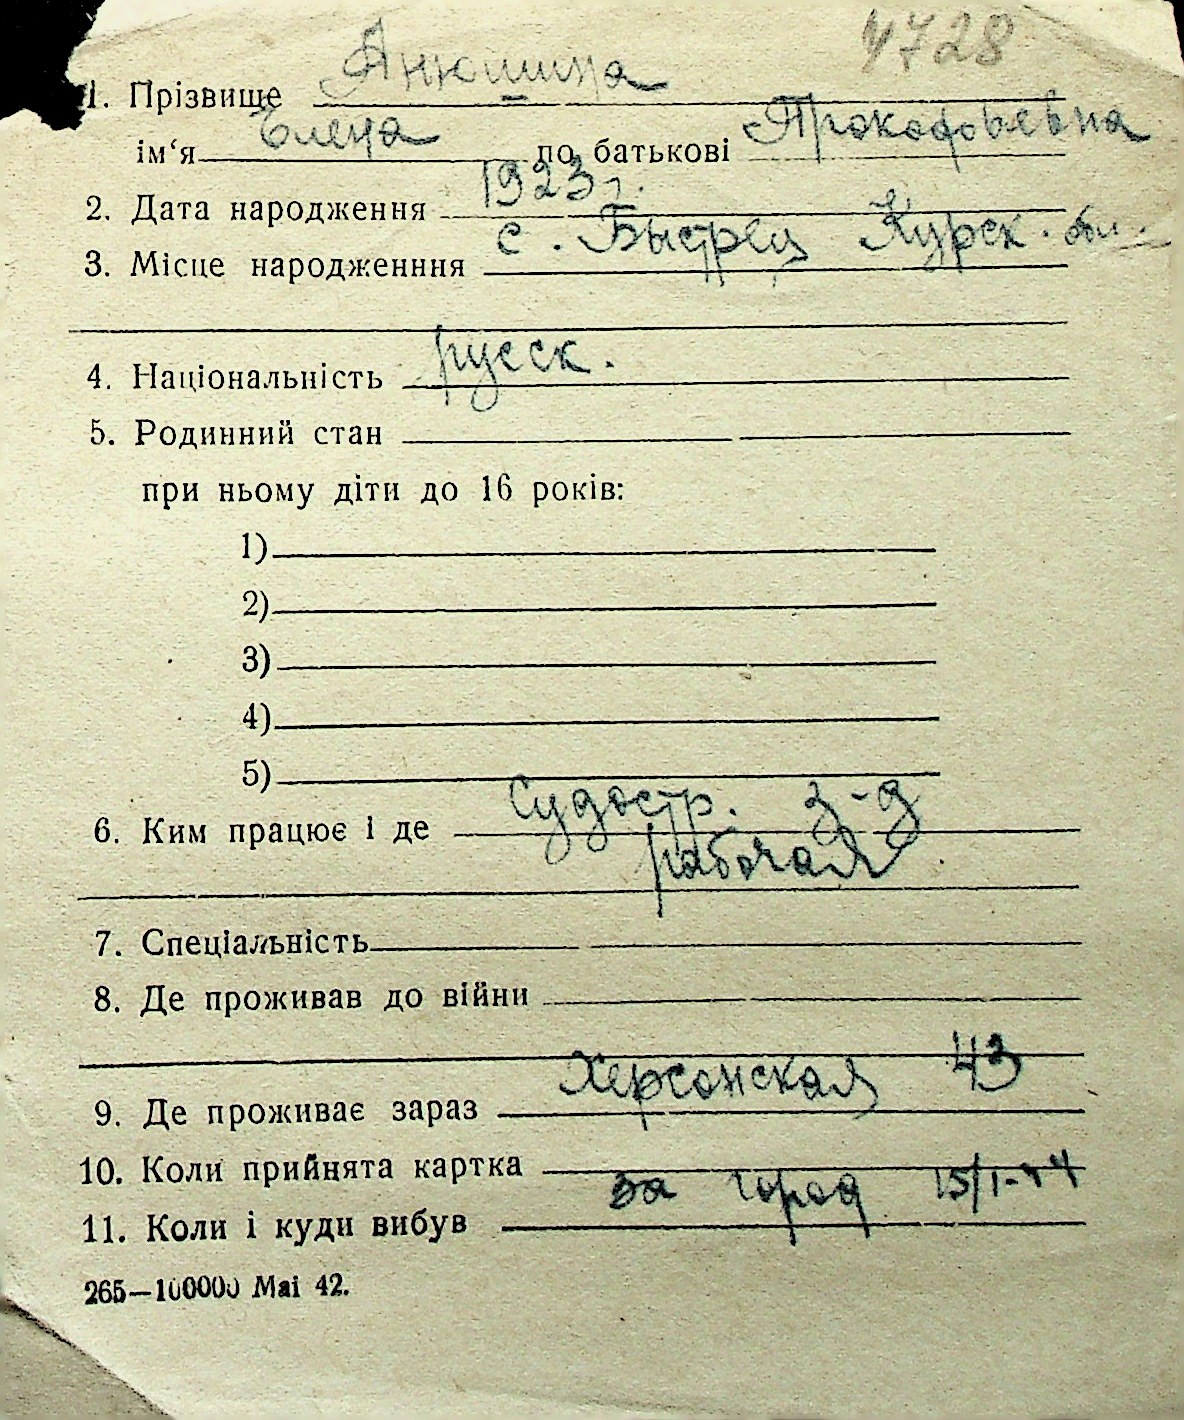 4728
1. Прізвище Анюшина
ім‘я Елена по батькові Прокофьевна
2. Дата народження 1923 г.
3. Місце народженння с. Быстрец Курск. обл.
4. Національність русск.
5. Родинний стан
при ньому діти до 16 років:
1)
2)
3)
4)
5)
6. Ким працює і де Судостр. з-д
рабочая
7. Спеціальність
8. Де проживав до війни
9. Де проживає зараз Херсонская 43
10. Коли прийнята картка
11. Коли і куди вибув за город 15/I-44
265—100000 Mai 42.